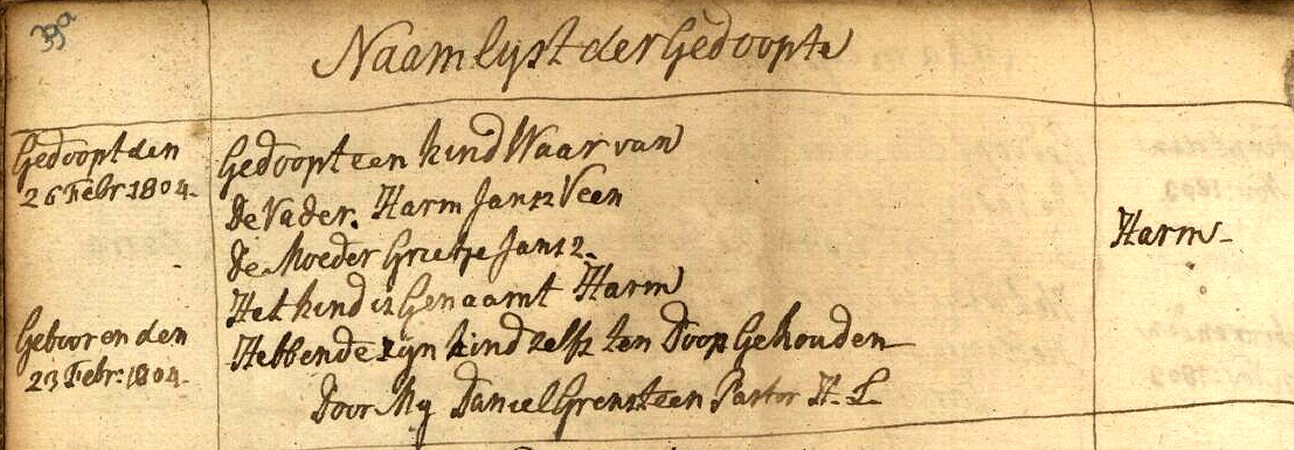 39a
Naamlyst der Gedoopte
Gedoopt den
26 Febr. 1804.
Gedoopt een kind Waar van
De Vader. Harm Jansz Veen
De Moeder Grietje Jansz.
Het kind is Genaamt Harm
Harm
Gebooren den
23 Febr: 1804.
Hebbende zyn kind zelfs ten Doop Gehouden
Door My Daniel Grensteen Pastor H. L.